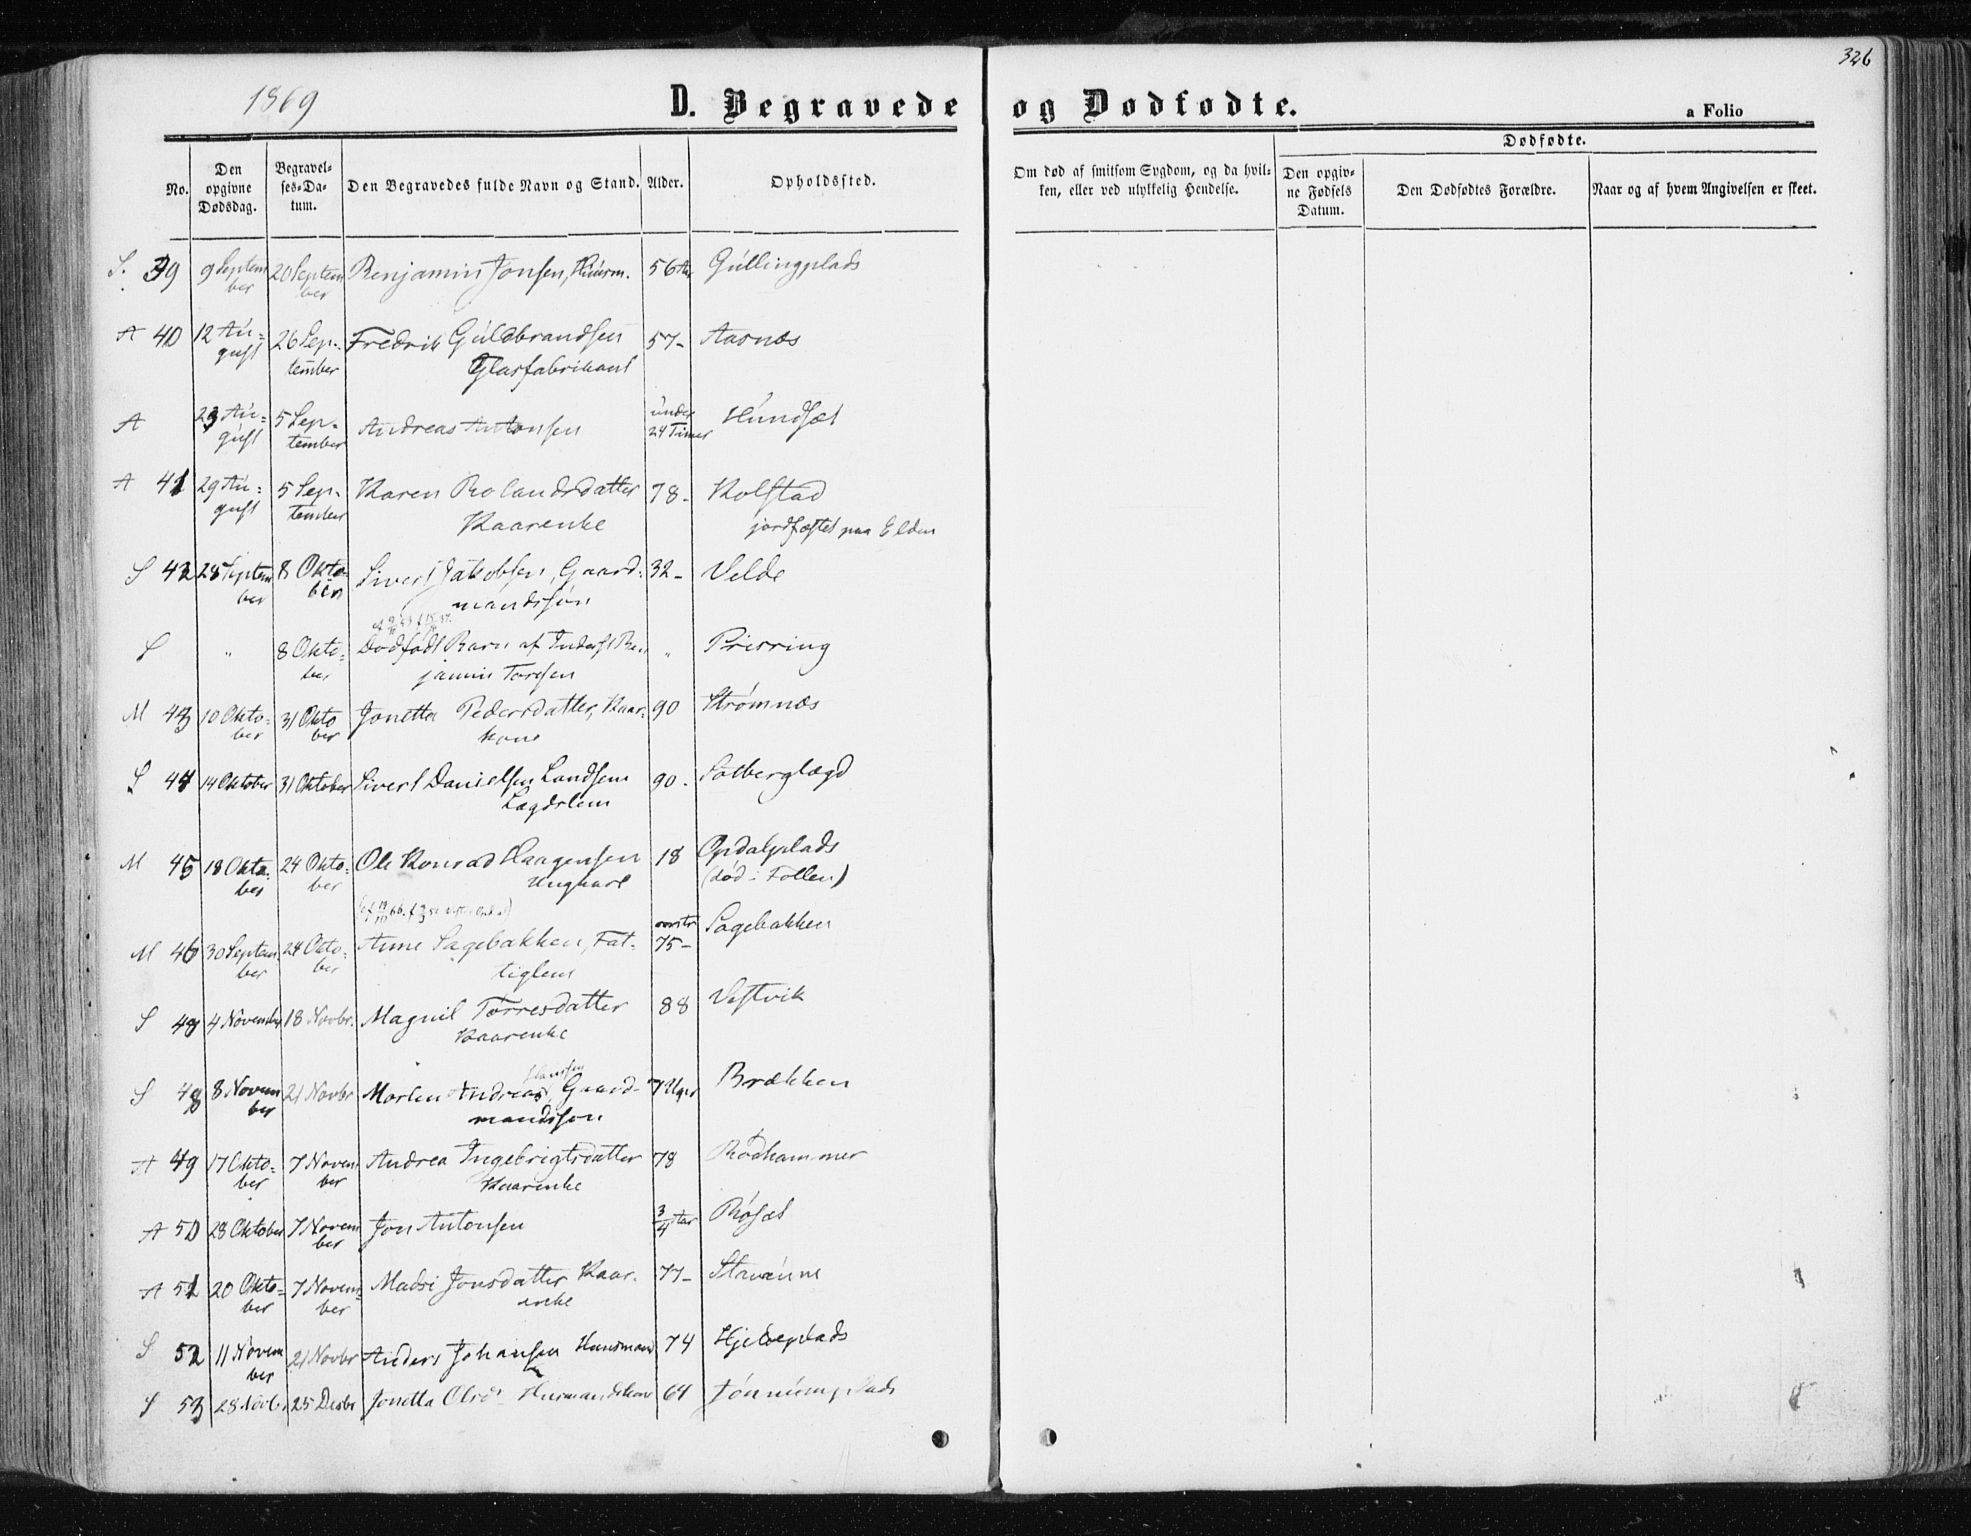 326
1869
D. Begravede og Dødfødte.
a Folio
No.
Den opgivne Dødsdag.
Begravelses-Datum.
Den Begravedes fulde Navn og Stand.
Alder.
Opholdssted.
Om død af smitsom Sygdom, og da hvilken, eller ved ulykkelig Hendelse.
Dødfødte.
Den opgivne Fødsels Datum.
Den Dødfødtes Forældre.
Naar og af hvem Angivelsen er skeet.
S. 39 9 September 20 September Benjamin Jonsen, Huusm. 56 Aar Gullingplads
A 40 12 August 26 September Fredrik Guldbrandsen 57- Aasnæs
Glasfabrikant
A 23 August 5 September Andreas Antonsen under 24 Timer Hundsæt
A 41 29 August 5 September Karen Rolandsdatter 78- Kolstad
Kaarenke jordfæstet paa Elden
S 42 28 September 8 Oktober Sivert Jakobsen, Gaard- 32- Velde
mandssøn
S " 8 Oktober Dødfødt Barn af Inderst Ben- " Prisring
jamin Toresen
M 43 10 Oktober 31 Oktober Jonetta Pedersdatter, Kaar- 90 Strømnæs
kone
S 44 14 Oktober 31 Oktober Sivert Danielsen Landsem 90- Solberglægd
Lægdslem
M 45 18 Oktober 24 Oktober Ole Konrad Haagensen 18 Opdalplads
Ungkarl (død i Follen)
M 46 30 September 24 Oktober Anne Sagebakken, Fat- 75- Sagebakken
tiglem
S 4 November 18 Novbr. Magnil Torresdatter 88 Vestvik
Kaarenke
Hansen
S 48 8 November 21 Novbr Morten Andreas, Gaard- 7 Uger Brækken
mandssøn
A 49 17 Oktober 7 November Andrea Ingebrigtsdatter 78 Rødhammer
Kaarenke
A 50 28 Oktober 7 November Jon Antonsen 3/4 Aar Røsæt
A 51 20 Oktober 7 November Madsi Jonsdatter Kaar- 77-
enke
S 52 11 November 21 Novbr Anders Johansen Huusmand 74 Hjelveplads
S 53 28 Novbr 25 Decbr Jonetta Olsd. Husmandskone 64